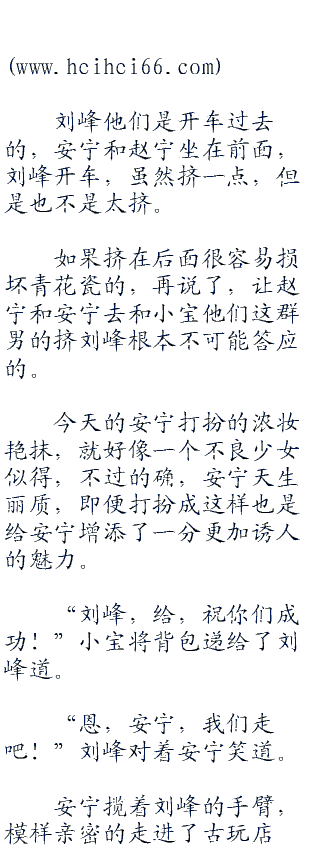 (www.hcihci66.com)
刘峰他们是开车过去
的，安宁和赵宁坐在前面，
刘峰开车，虽然挤一点，但
是也不是太挤。
如果挤在后面很容易损
坏青花瓷的，再说了，让赵
宁和安宁去和小宝他们这群
男的挤刘峰根本不可能答应
的。
今天的安宁打扮的浓妆
艳抹，就好像一个不良少女
似得，不过的确，安宁天生
丽质，即便打扮成这样也是
给安宁增添了一分更加诱人
的魅力。
“刘峰，给，祝你们成
功！”小宝将背包递给了刘
峰道。
“恩，安宁，我们走
吧！”刘峰对着安宁笑道。
安宁揽着刘峰的手臂，
模样亲密的走进了古玩店